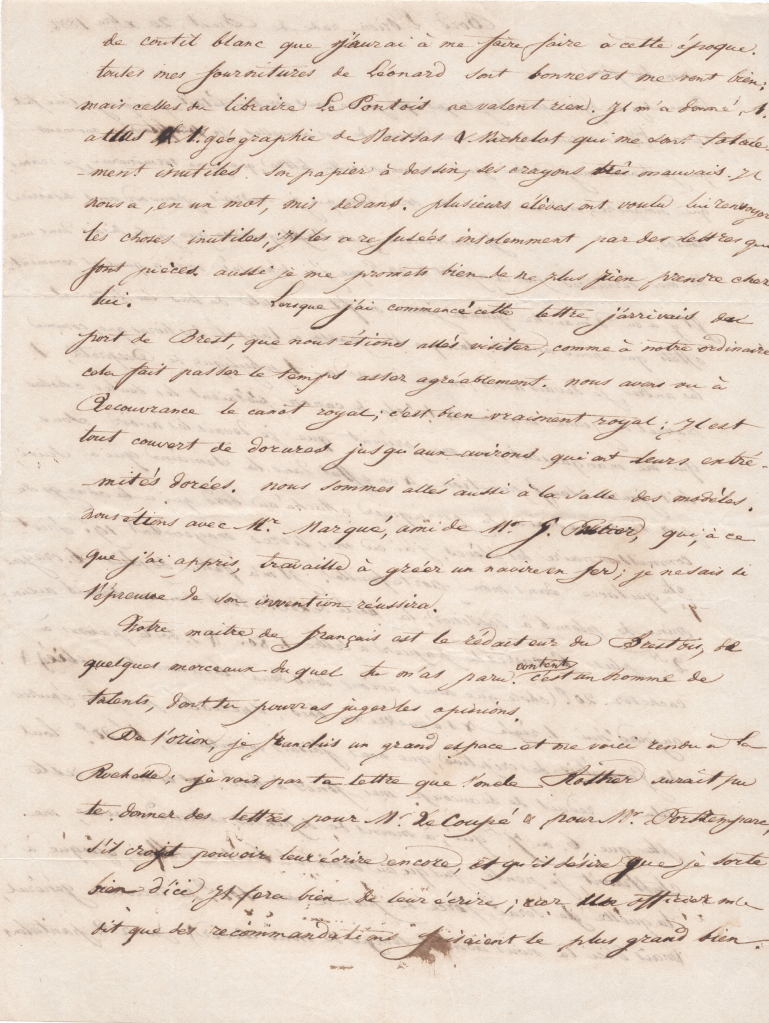 de coutil blanc que j'aurai à me faire faire à cette époque.
toutes mes fournitures de Léonard sont bonnes et me vont bien;
mais celles du libraire Le Pontois ne valent rien. Il m'a donné
atlas & géographie de Meissas & Michelot qui me sont totale-
-ment inutiles. Son papier à dessin, ses crayons très mauvais. Il
nous a, en un mot, mis dedans. plusieurs élèves ont voulu lui renvoyer
les choses inutiles; Il les a refusées insolemment par des lettres qui
font pièces. aussi je me promets bien de ne plus rien prendre chez
lui. Lorsque j'ai commencé cette lettre j'arrivais du
port de Brest, que nous étions allés visiter, comme à notre ordinaire
cela fait passer le temps assez agréablement. nous avons vu à
Recouvrance le canot royal; c'est bien vraiment royal; Il est
tout couvert de dorures jusqu'aux avirons qui ont leurs extré-
-mités dorées. nous sommes allés aussi à la salle des modèles.
nous étions avec Mr. Marqué, ami de Mr. G. qui, à ce
que j'ai appris, travaille à gréer un navire en fer; je ne sais si
l'épreuve de son invention réussira.
Notre maitre de français est le rédacteur du Brestois, de
quelques morceaux duquel tu m'as paru content. c'est un homme de
talents, dont tu pourras juger les opinions.
De l'orion, je franchis un grand espace et me voici rendu à la
Rochelle; je vois par ta lettre que l'oncle aurait pu
te donner des lettres pour Mr. Le Coupé & pour Mr.
s'il croit pouvoir leur écrire encore, et qu'il désire que je sorte
bien d'ici, Il fera bien de leur écrire; car un officier m'a
dit que des recommandations faisaient le plus grand bien.